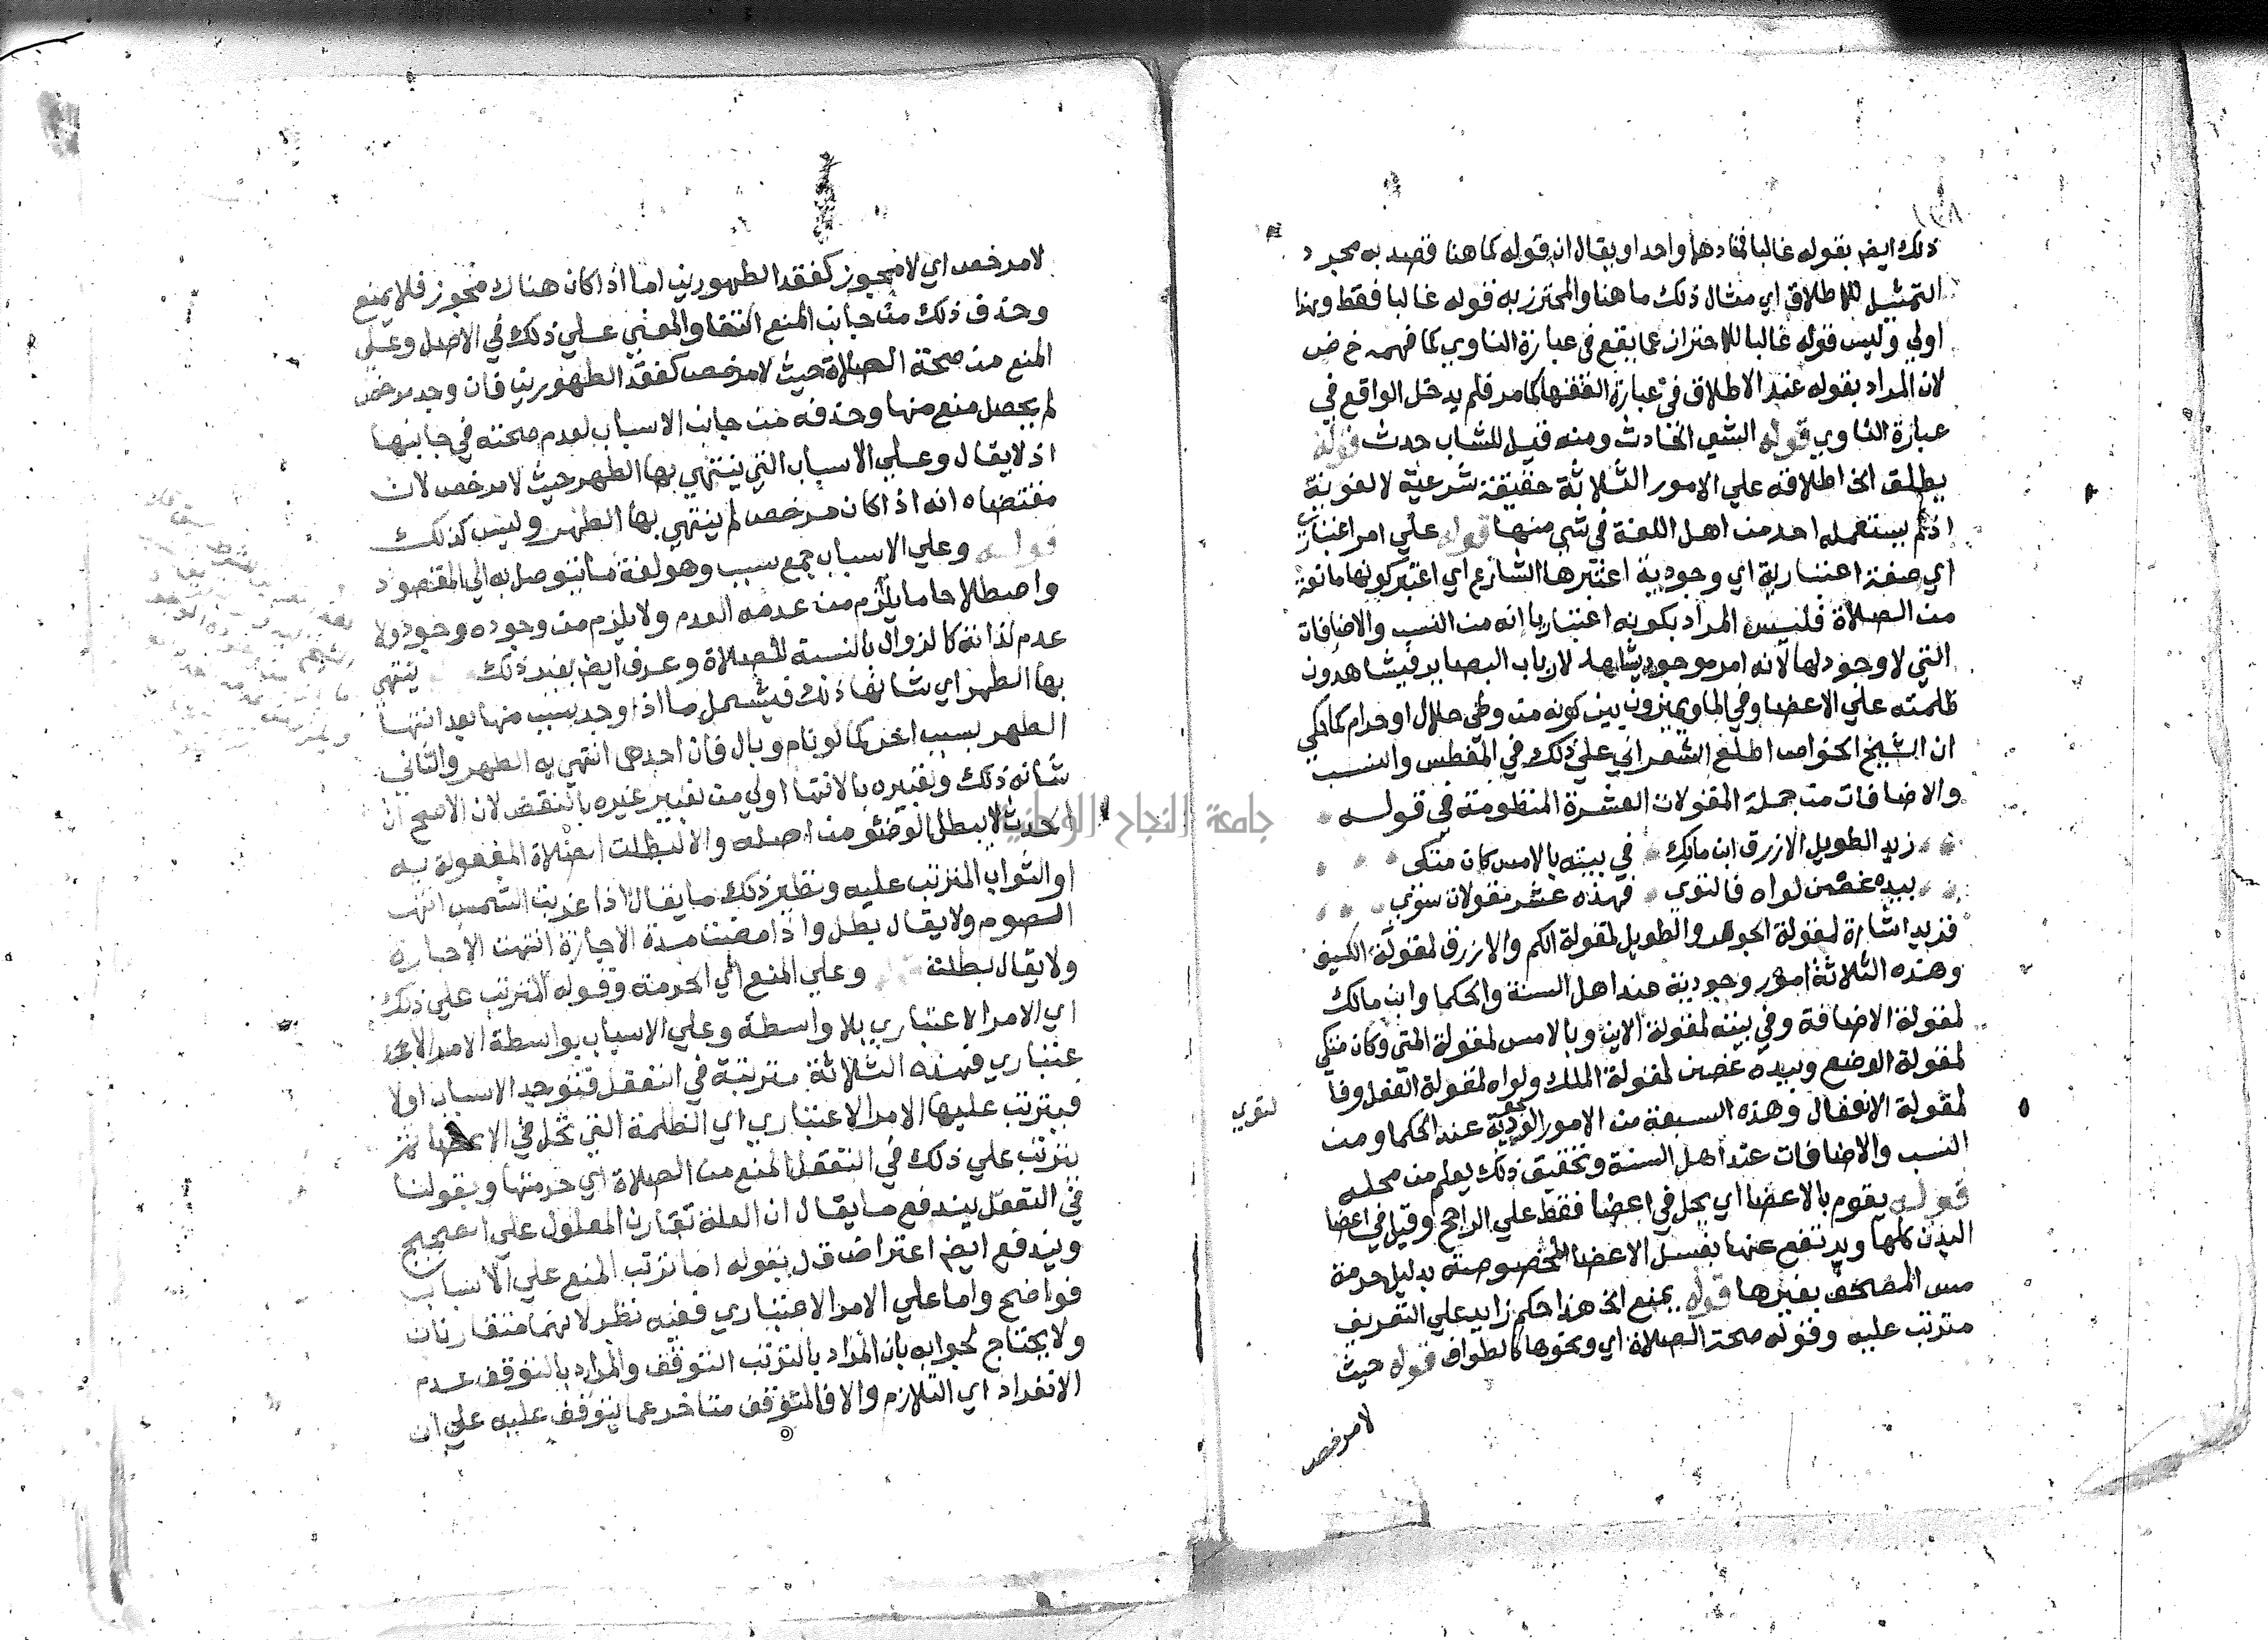 ذلك ايضا بقوله غالبا فمفادهما واحد او يقال ان قوله كما هنا قصد به مجرد
التمثيل للاطلاق اي مثال ذلك ما هنا والمحترز به قوله غالبا فقط وهذا
اولي وليس قوله غالبا للاحتراز عما يقع في عبارة الناوي كما فهمه خ ض
لان المراد بقوله عند الاطلاق في عبارة الفقها كما مر فلم يدخل الواقع في
عبارة الناوي قوله الشي الحادث ومنه قيل للشاب حدث قوله
يطلق الخ اطلاقه علي الامور الثلاثة حقيقة شرعية لا لغوية
اذ لم يستعمله احد من اهل اللغة في شي منها قوله علي امر اعتباري
اي صفة اعتبارية اي وجودية اعتبرها الشارع اي اعتبر كونها مانعة
من الصلاة فليس المراد بكونه اعتباريا انه من النسب والاضافات
التي لا وجود لها لانه امر موجود يشاهد لارباب البصاير فيشاهدون
ظلمته علي الاعضا وفي الما ويميزون بين كونه من وطي حلال او حرام كما حكي
ان الشيخ الخواص اطلع الشعراني علي ذلك في المغطس والنسب
والاضافات من جملة المقولات العشرة المنظومة في قوله
زيد الطويل الازرق ابن مالك في بيته بالامس كان متكي
بيده غصن لواه فالتوي فهذه عشر مقولات سوي
فزيد اشارة لمقولة الجوهر والطويل لمقولة الكم والازرق لمقولة الكيف
وهذه الثلاثة امور وجودية عند اهل السنة والحكما وابن مالك
لمقولة الاضافة وفي بيته لمقولة الاين وبالامس لمقولة المتي وكان متكي
لمقولة الوضع وبيده غصن لمقولة الملك ولواه لمقولة الفعل وفا
لتوي
لمقولة الانفعال وهذه السبعة من الامور الوجودية عند الحكما ومن
النسب والاضافات عند اهل السنة وتحقيق ذلك يعلم من محله
قوله يقوم بالاعضا اي يحل في اعضا فقط علي الراجح وقيل في اعضا
البدن كلها ويرتفع عنها بغسل الاعضا المخصوصة بدليل حرمة
مس المصحف بغيرها قوله يمنع الخ هذا حكم زايد علي التعريف
مترتب عليه وقوله صحة الصلاة اي ونحوها كالطواف قوله حيث
لا مرخص
لا مرخص اي لا مجوز كفقد الطهورين اما اذا كان هناك مجوز فلا يمنع
وحذف ذلك من جانب المنع اكتفا والمعني علي ذلك في الاصل وعلي
المنع من صحة الصلاة حيث لا مرخص كفقد الطهورين فان وجد مرخص
لم يحصل منع منها وحذفه من جانب الاسباب لعدم صحته في جانبها
اذ لا يقال وعلي الاسباب التي ينتهي بها الطهر حيث لا مرخص لان
مقتضاه انه اذا كان مرخص لم ينتهي بها الطهر وليس كذلك
قوله وعلي الاسباب جمع سبب وهو لغة ما يتوصل به الي المقصود
واصطلاحا ما يلزم من عدمه العدم ولا يلزم من وجوده وجود ولا
عدم لذاته كالزوال بالنسبة للصلاة وعرف ايضا بغير ذلك ينتهي
بها الطهر اي شانها ذلك فيشمل ما اذا وجد سبب منها بعد انتها
الطهر بسبب اخر كما لو نام وبال فان احدهما انتهي به الطهر والثاني
شانه ذلك وتعبيره بالانتها اولي من تعبير غيره بالنقض لان الاصح ان
الحدث لا يبطل الوضوء من اصله والا لبطلت الصلاة المفعولة به
او الثواب المترتب عليه ونظير ذلك ما يقال اذا غربت الشمس انتهي
الصوم ولا يقال بطل واذا مضت مدة الاجازة انتهت الاجارة
ولا يقال بطلت وعلي المنع اي الحرمة وقوله المترتب علي ذلك
اي الامر الاعتباري بلا واسطة وعلي الاسباب بواسطة الامر الاعـ
عتباري فهذه الثلاثة مترتبة في التعقل فتوجد الاسباب اولا
فيترتب عليها الامر الاعتباري اي الظلمة التي تحل في الاعضا ثم
يترتب علي ذلك في التعقل المنع من الصلاة اي حرمتها وبقولنا
في التعقل يندفع ما يقال ان العلة تقارن المعلول علي الصحيح
ويندفع ايضا اعتراض ق ل بقوله اما ترتب المنع علي الاسباب
فواضح واما علي الامر الاعتباري ففيه نظر لانهما متقارنان
ولا يحتاج لجوابه بان المراد بالترتب التوقف والمراد بالتوقف عدم
الانفراد اي التلازم والا فالمتوقف متاخر عما يتوقف عليه علي ان
جامعة النجاح الوطنية